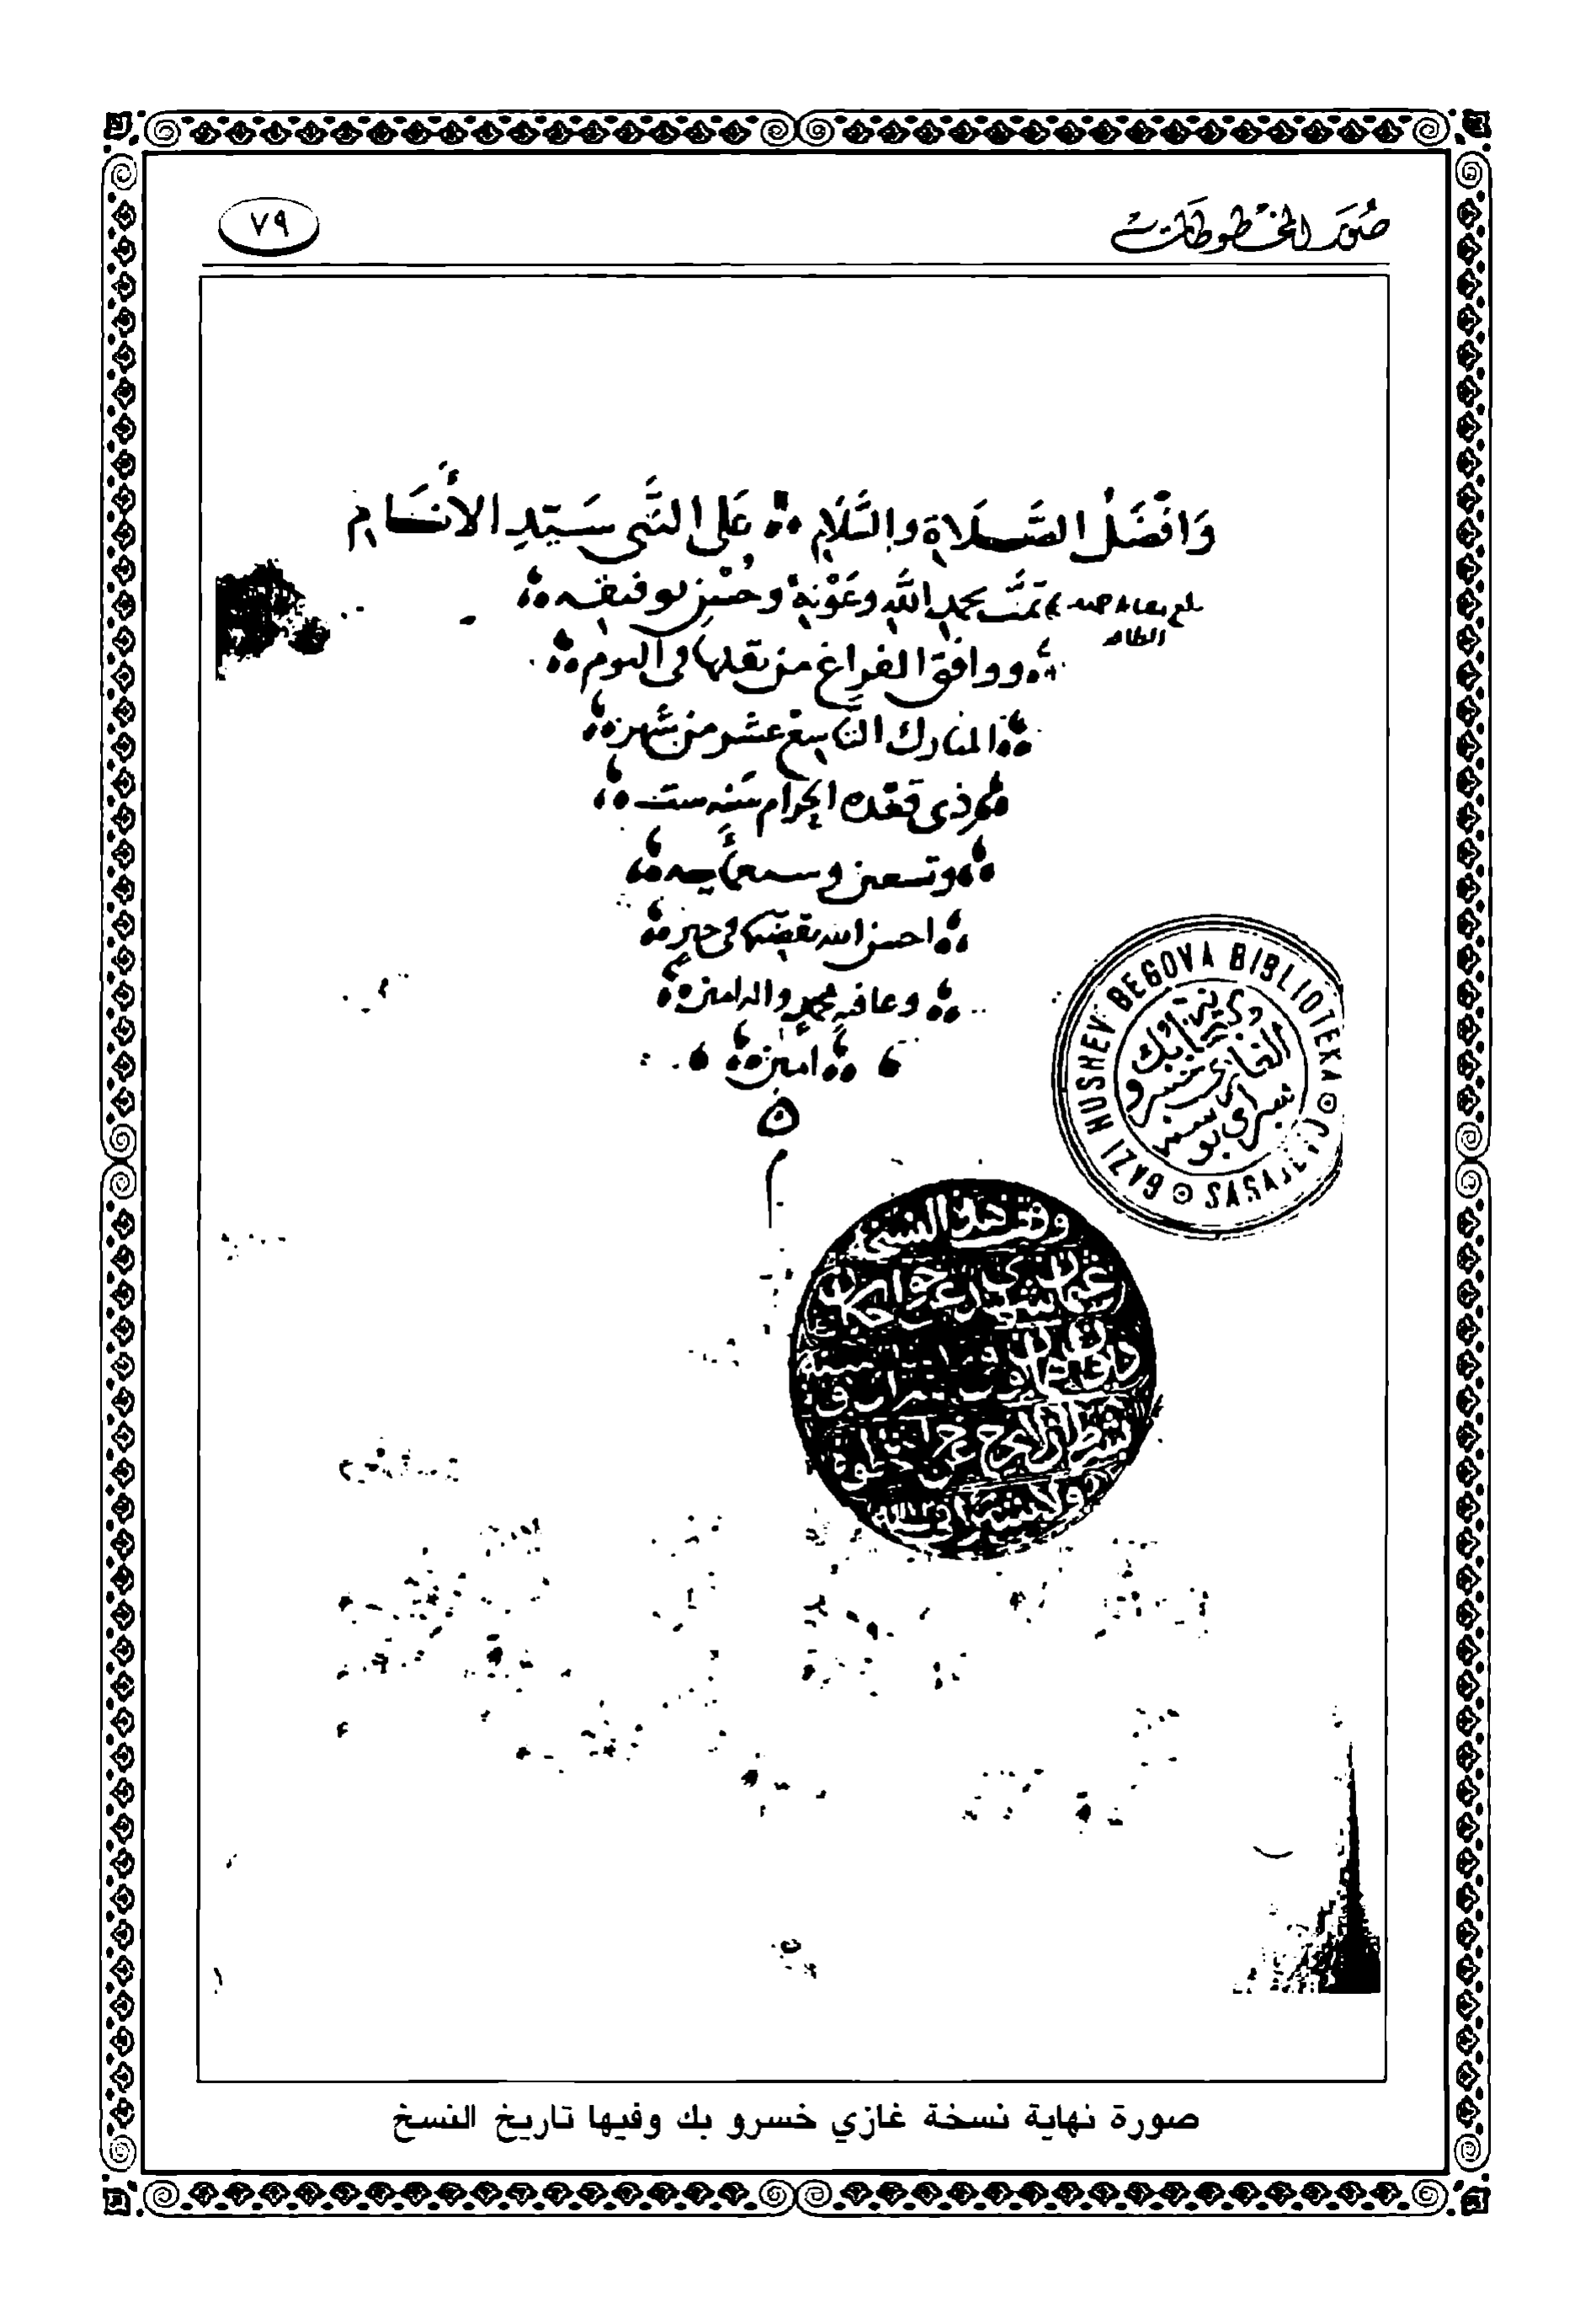 صُوَر المخطوطات
٧٩
وَافْضَلُ الصَّلَاة والسَّلَامِ عَلَى النَّبي سَيِّدِ الأَنَام
تمَّت بحمد اللهِ وعَوْنِهِ وحُسْنِ توفيقه
بلغ مقابلة حسب
الطاقة
ووافق الفراغ من نقلها في اليوم
المبارك التاسع عشر من شهر
ذي قعدة الحرام سنه ست
وتسعين وسبعمأيه
احسن الله تقضيها في خير
وعافيه بمحمدٍ واله امين
امين
GAZI HUSREV BEGOVA BIBLIOTEKA
SARAJEVO
الغازي خسرو
وقف هذه النسخة
صورة نهاية نسخة غازي خسرو بك وفيها تاريخ النسخ